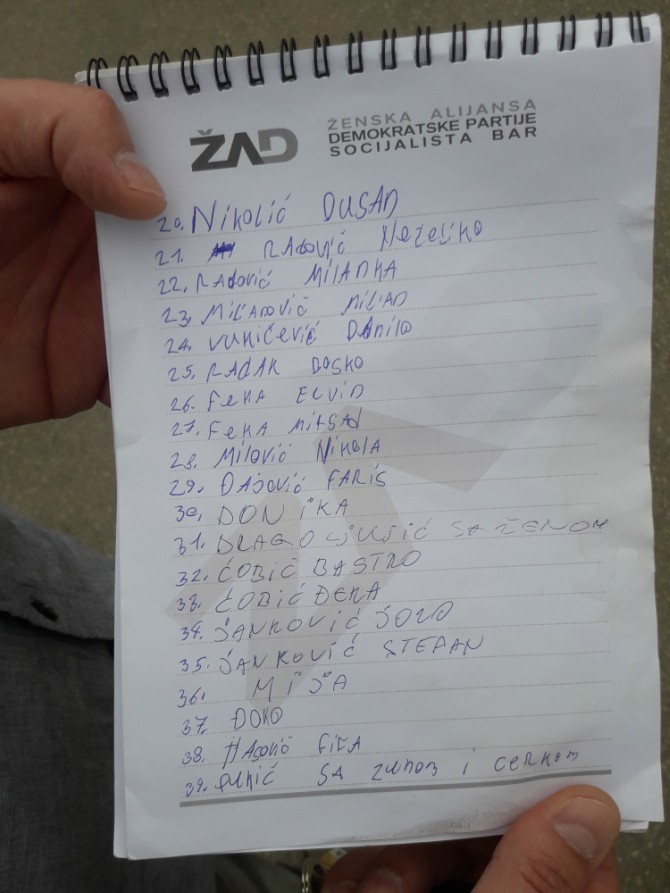 ŽAD
ŽENSKA ALIJANSA
DEMOKRATSKE PARTIJE
SOCIJALISTA BAR
20. Nikolić DUSAN
21. RAdović
22. RAdović MILANKA
23. MILAN
24. VUKIČEVIĆ DANilo
25. RADAK BOSKO
26. FEKA ELVID
27. FEKA MIRSAD
28. Milović NikolA
29. ĐAJOVIĆ FARIS
30. DON iKA
31. DRAGOLJUBIĆ SA ŽENOM
32. ĆOBIĆ BASTRO
33. ĆOBIĆ ĐEKA
34. JANKOVIĆ JOZO
35. JANKOVIĆ STEPAN
36. MiJA
37. ĐOKO
38.
39. SA ZENOM i CERKOM